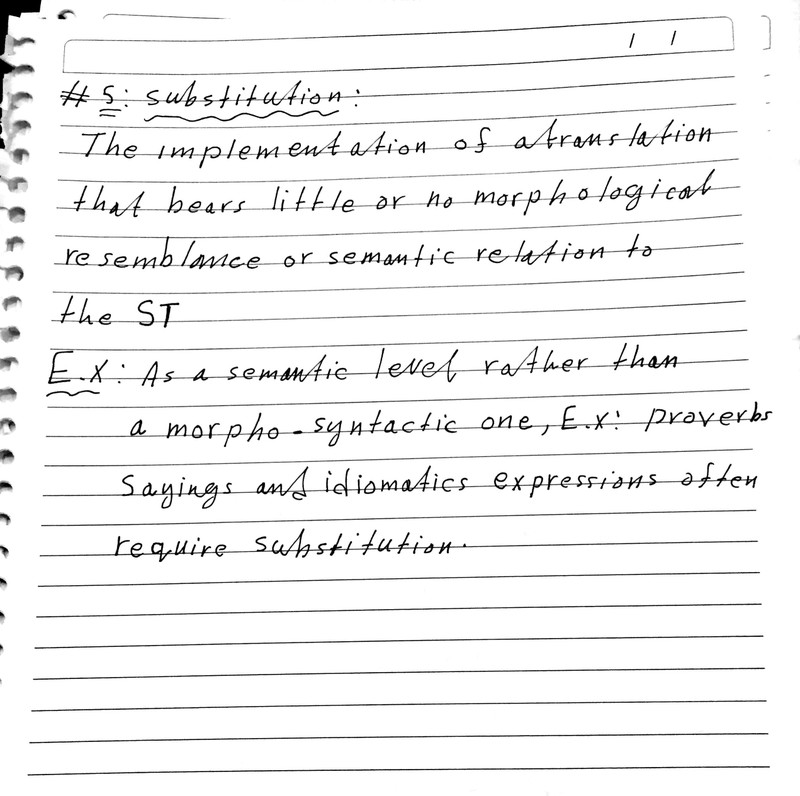 / /
# 5: substitution:
The implementation of atranslation
that bears little or no morphological
resemblance or semantic relation to
the ST
E.x: As a semantic level rather than
a morpho-syntactic one, E.x: proverbs
Sayings and idiomatics expressions often
require substitution.